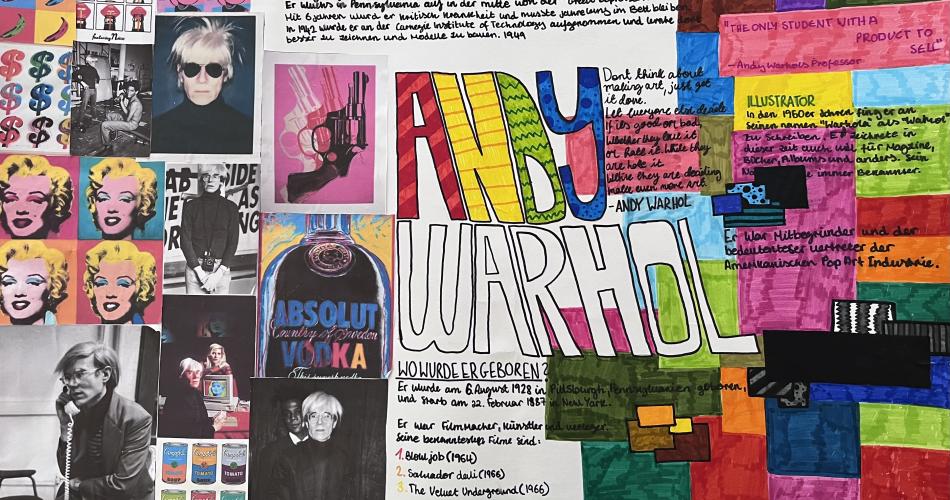 Mit 6 Jahren wurd er kritisch krankheit und musste jahrelang im Bett bleiben.
In 1942 wurde er an der Carnegie Institute of Technology aufgenommen und lernte dort
besser zu zeichnen und Modelle zu bauen. 1949
"THE ONLY STUDENT WITH A
PRODUCT TO
SELL"
-Andy Warhols Professor
ANDY
WARHOL
Dont think about
making art, just get
it done.
Let everyone else decide
If its good or bad,
whether they love it
or hate it. While they
are hate it
While they are deciding
make even more art.
-ANDY WARHOL
ILLUSTRATOR
In den 1950er Jahren fing er an
seinen namen "Warhola" als "Warhol"
zu schreiben. Er zeichnete in
dieser zeit auch viel für Magazine,
Bücher, Albums und anders. Sein
immer Bekannter.
Er War Mitbegründer und der
bedeutenster vertreter der
Amerikanischen Pop Art Industrie.
ABSOLUT
Country of Sweden
VODKA
WO WURDE ER GEBOREN?
Er wurde am 6. August 1928 in Pittsburgh, Pennsylvanien geboren,
und starb am 22. Februar 1987 in New York.
Er war FilmMacher, Künstler und verleger.
Seine bekanntesten Filme sind:
1. Blow job (1964)
2. Salvador dali (1966)
3. The Velvet Underground (1966)
Campbell's Campbell's Campbell's
TOMATO